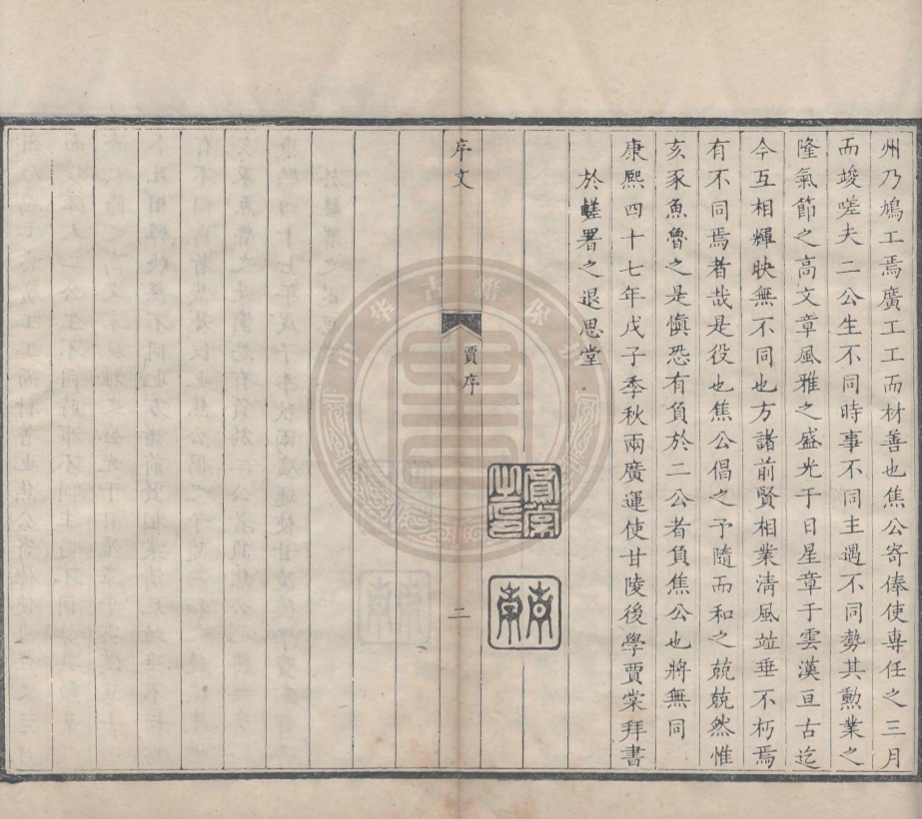 州乃鳩工焉廣工工而材善也焦公寄俸使専任之三月
而竣嗟夫二公生不同時事不同主遇不同勢其勲業之
隆氣節之高文章風雅之盛光于日星章于雲漢亘古迄
今互相輝映無不同也方諸前賢相業淸風竝垂不朽焉
有不同焉者哉是役也焦公倡之予隨而和之兢兢然惟
亥豕魚魯之是愼恐有負於二公者負焦公也將無同
康熙四十七年戊子季秋兩廣運使甘陵後學賈棠拜書
於鹺署之退思堂
賈棠之印
青南
序文
賈序
二